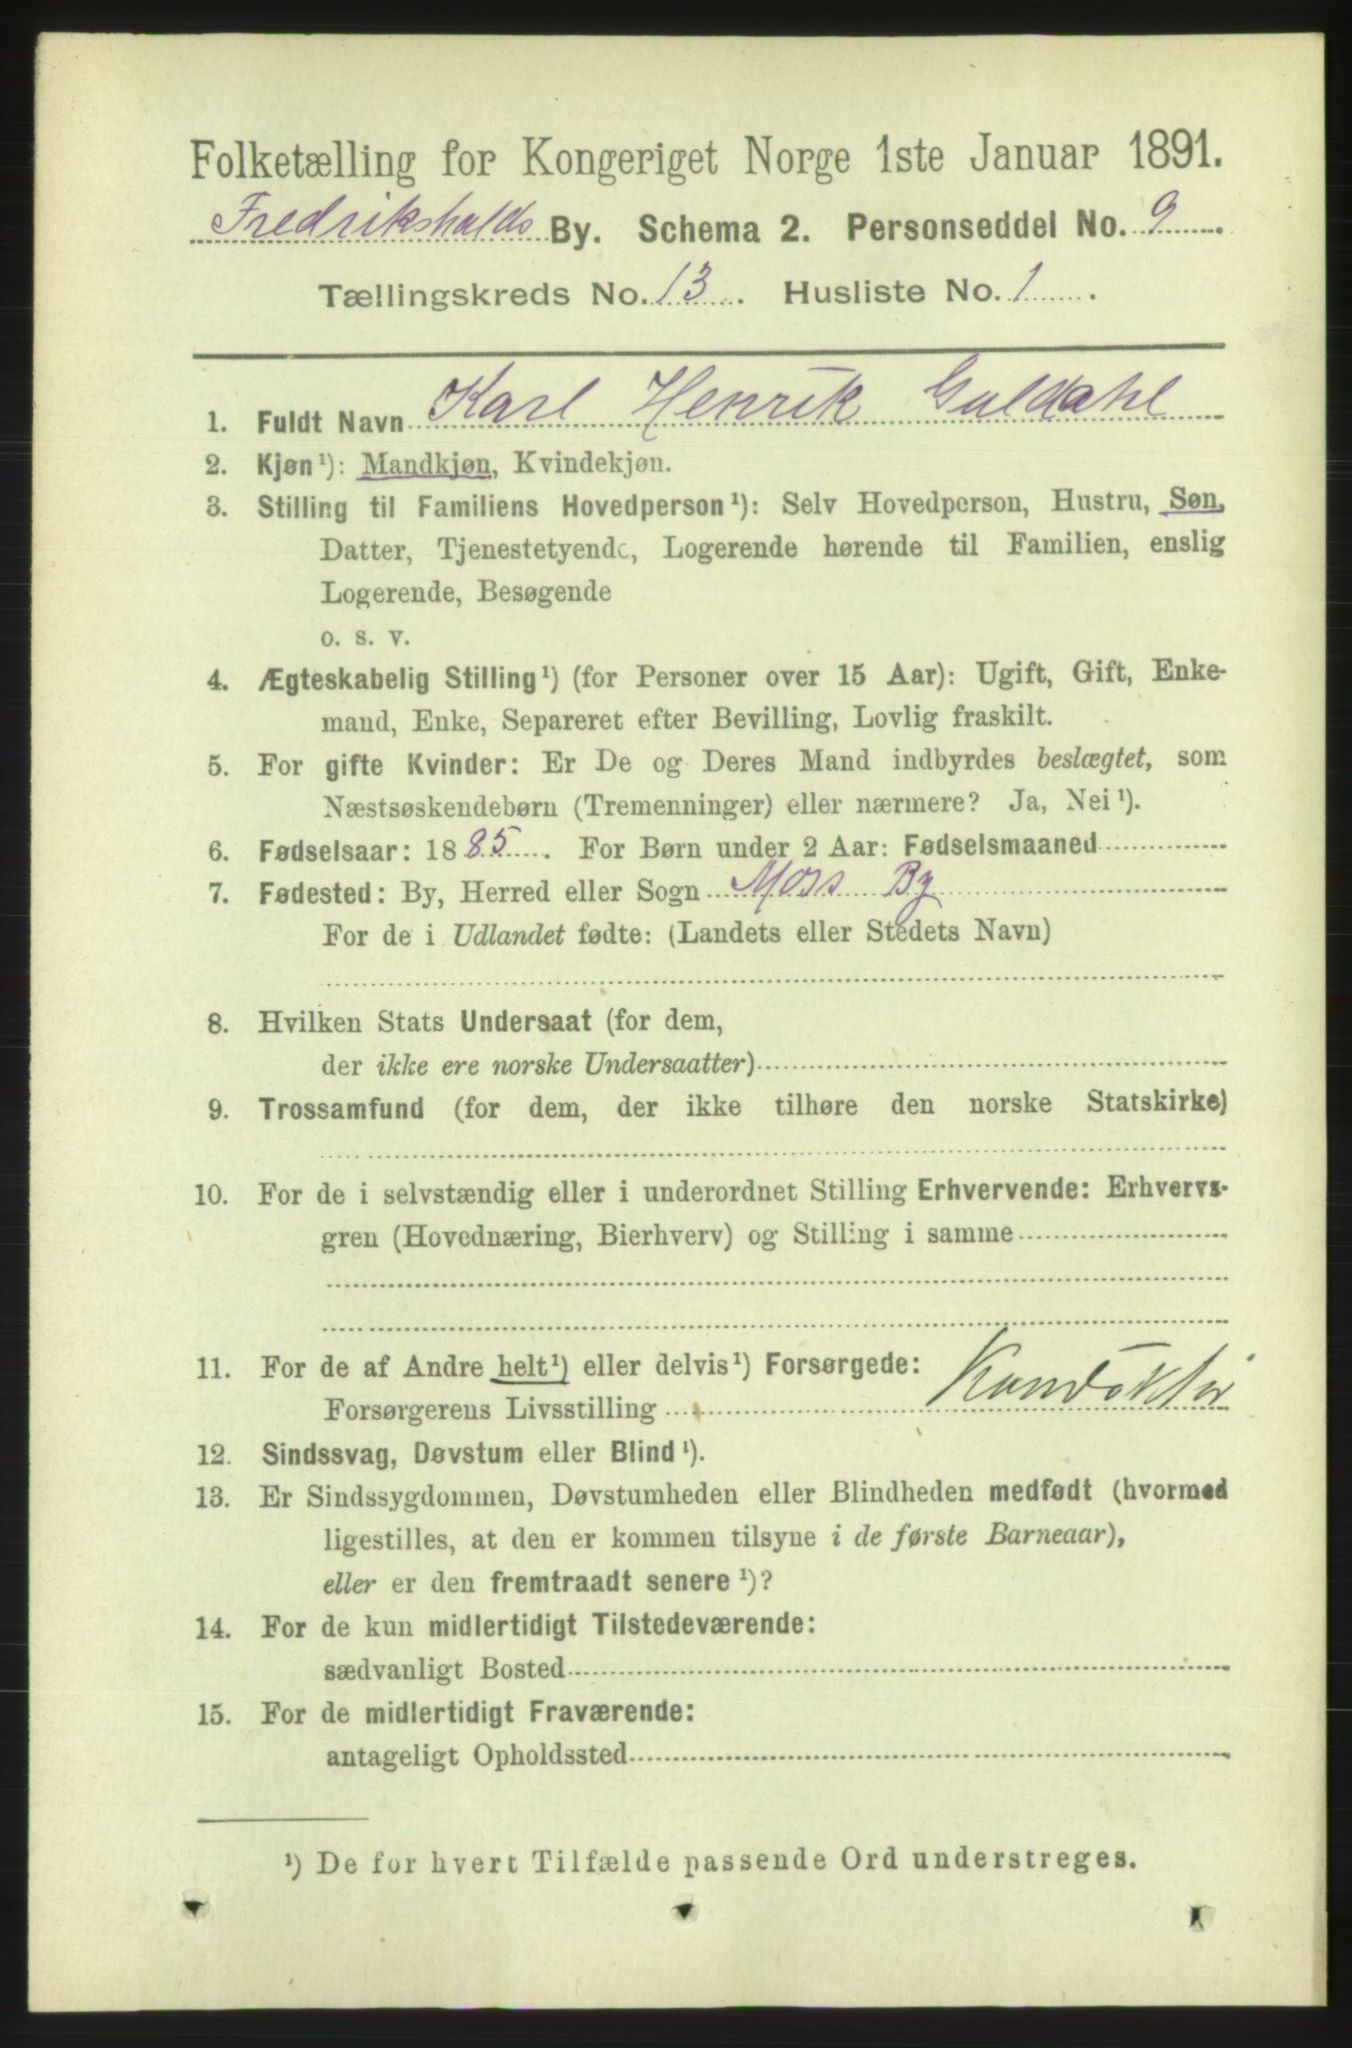 Folketælling for Kongeriget Norge 1ste Januar 1891.
Fredrikshalds By. Schema 2. Personseddel No. 9.
Tællingskreds No. 13. Husliste No. 1.
1. Fuldt Navn Karl Henrik Guldahl
2. Kjøn¹): Mandkjøn, Kvindekjøn.
3. Stilling til Familiens Hovedperson¹): Selv Hovedperson, Hustru, Søn,
Datter, Tjenestetyende, Logerende hørende til Familien, enslig
Logerende, Besøgende
o. s. v.
4. Ægteskabelig Stilling¹) (for Personer over 15 Aar): Ugift, Gift, Enke-
mand, Enke, Separeret efter Bevilling, Lovlig fraskilt.
5. For gifte Kvinder: Er De og Deres Mand indbyrdes beslægtet, som
Næstsøskendebørn (Tremenninger) eller nærmere? Ja, Nei¹).
6. Fødselsaar: 1885. For Børn under 2 Aar: Fødselsmaaned
7. Fødested: By, Herred eller Sogn Moss By
For de i Udlandet fødte: (Landets eller Stedets Navn)
8. Hvilken Stats Undersaat (for dem,
der ikke ere norske Undersaatter)
9. Trossamfund (for dem, der ikke tilhøre den norske Statskirke)
10. For de i selvstændig eller i underordnet Stilling Erhvervende: Erhvervs-
gren (Hovednæring, Bierhverv) og Stilling i samme
11. For de af Andre helt¹) eller delvis¹) Forsørgede:
Forsørgerens Livsstilling Konduktør
12. Sindssvag, Døvstum eller Blind¹).
13. Er Sindssygdommen, Døvstumheden eller Blindheden medfødt (hvormed
ligestilles, at den er kommen tilsyne i de første Barneaar),
eller er den fremtraadt senere¹)?
14. For de kun midlertidigt Tilstedeværende:
sædvanligt Bosted
15. For de midlertidigt Fraværende:
antageligt Opholdssted
¹) De for hvert Tilfælde passende Ord understreges.